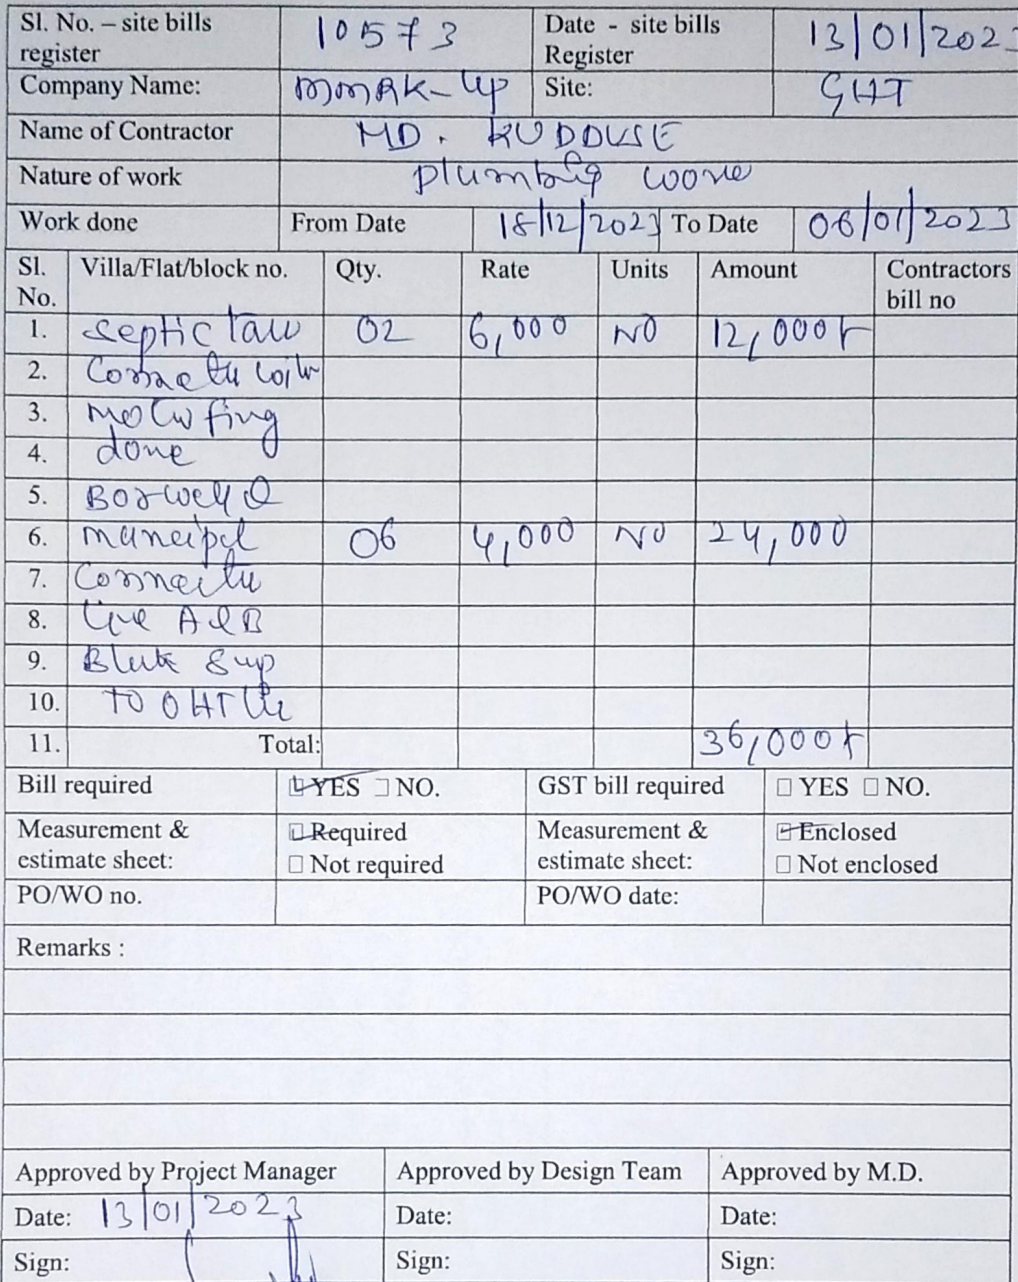 Sl. No. – site bills register 10573 Date - site bills Register 13/01/202
Company Name: Site: GHT
Name of Contractor MD. KUDDUSE
Nature of work plumbig
Work done From Date 18/12/2023 To Date 06/01/2023
Sl. No. Villa/Flat/block no. Qty. Rate Units Amount Contractors bill no
1. septic 02 6,000 NO 12,000
2.
3.
4. done
5.
6. muncipl 06 4,000 NO 24,000
7.
8.
9.
10. TO OHT
11. Total: 36,000
Bill required YES NO. GST bill required YES NO.
Measurement & estimate sheet: Required Not required Measurement & estimate sheet: Enclosed Not enclosed
PO/WO no. PO/WO date:
Remarks :
Approved by Project Manager Approved by Design Team Approved by M.D.
Date: 13/01/2023 Date: Date:
Sign: Sign: Sign: